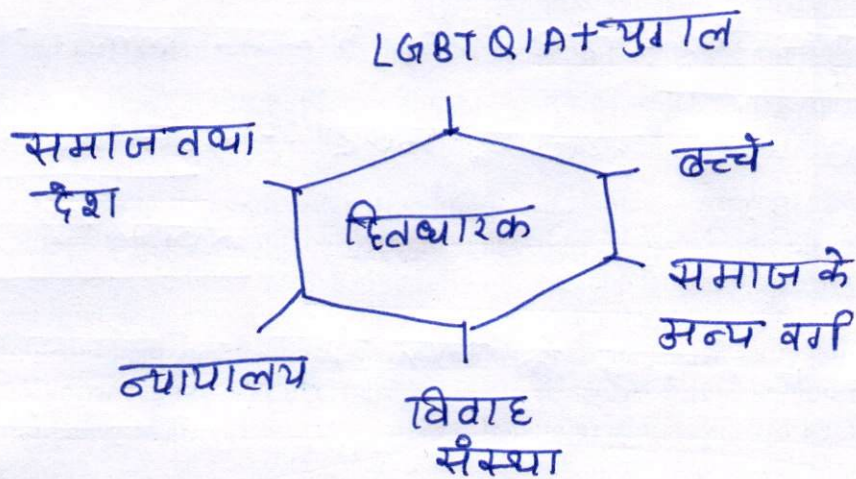 LGBTQIA+ युगल
समाज तथा
देश
बच्चे
हितधारक
समाज के
अन्य वर्ग
न्यायालय
विवाह
संस्था